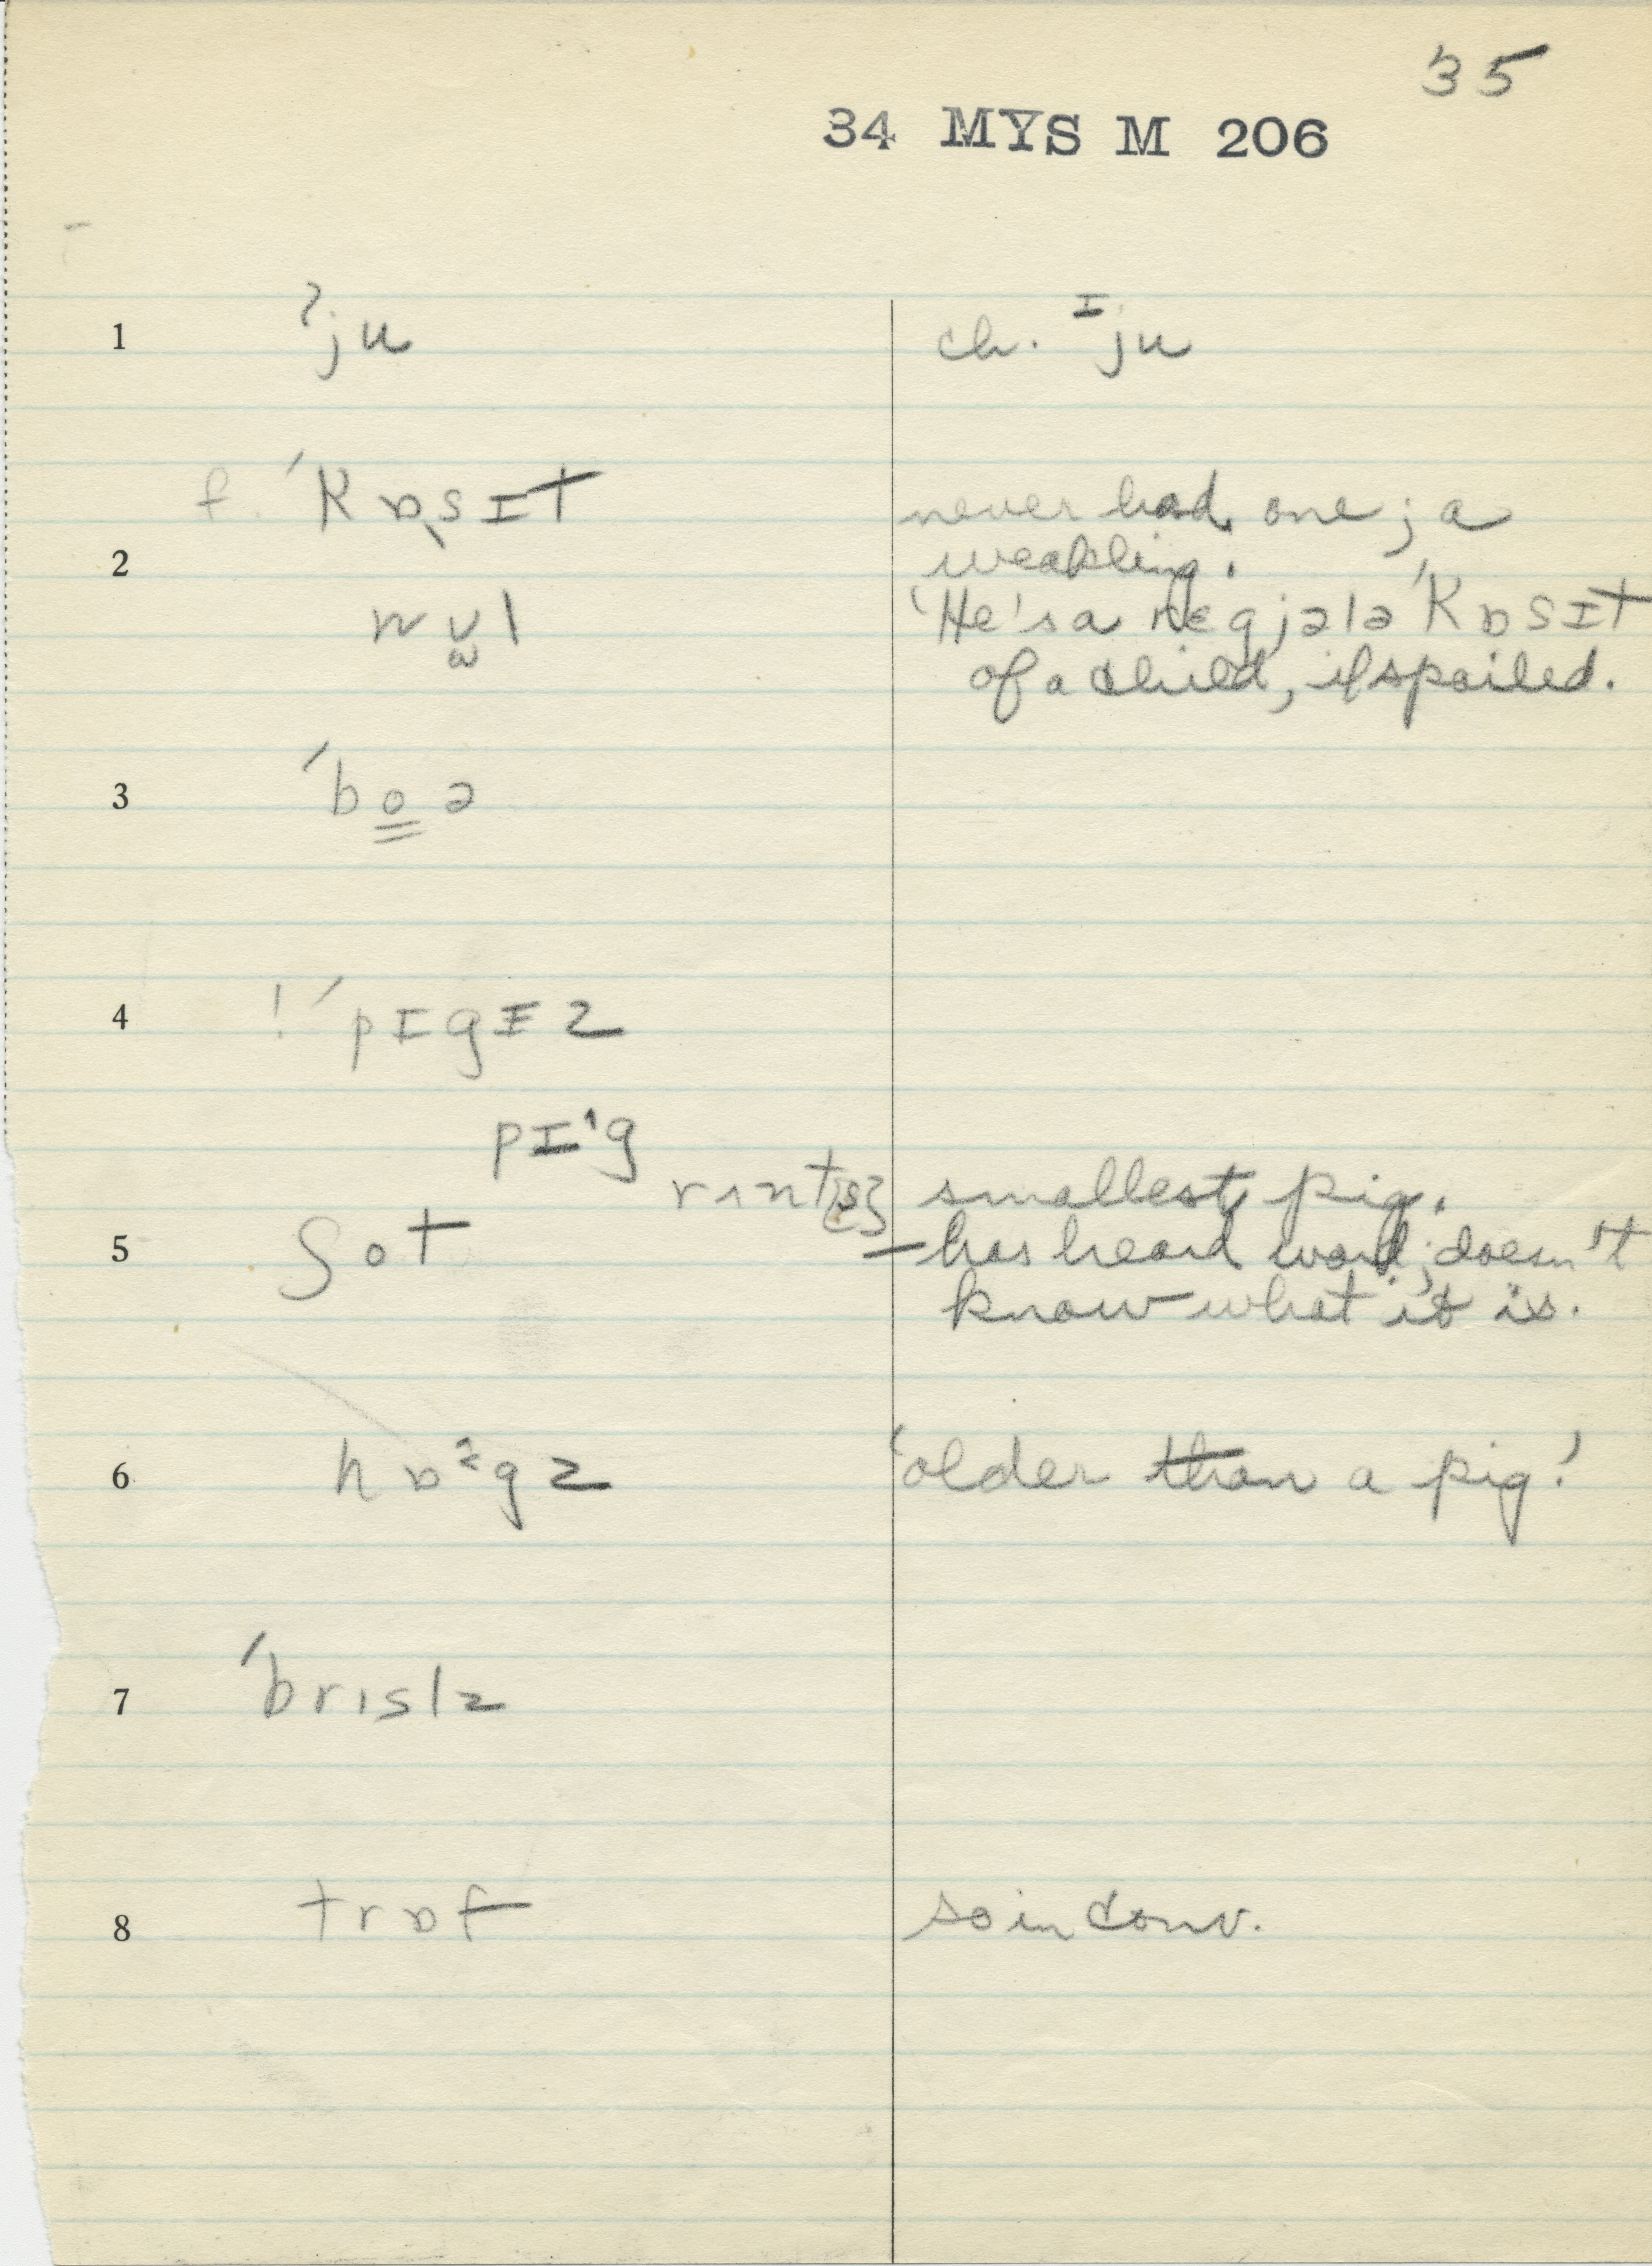 35
34 MYS M 206
1 ˀju ch. ᶦju
f. ˈkɒsɪt never had one; a
2 weakling.
wʊl 'He's a rɛgjələ ˈkɒsɪt
of a child, if spoiled.
3 ˈboə
4 ! ˈpɪgɪz
pɪˑg
rʌnt smallest pig.
5 ʃot – has heard word; doesn't
know what it is.
6 hɒˑgz 'older than a pig.'
7 ˈbrɪslz
8 trɒf so in conv.